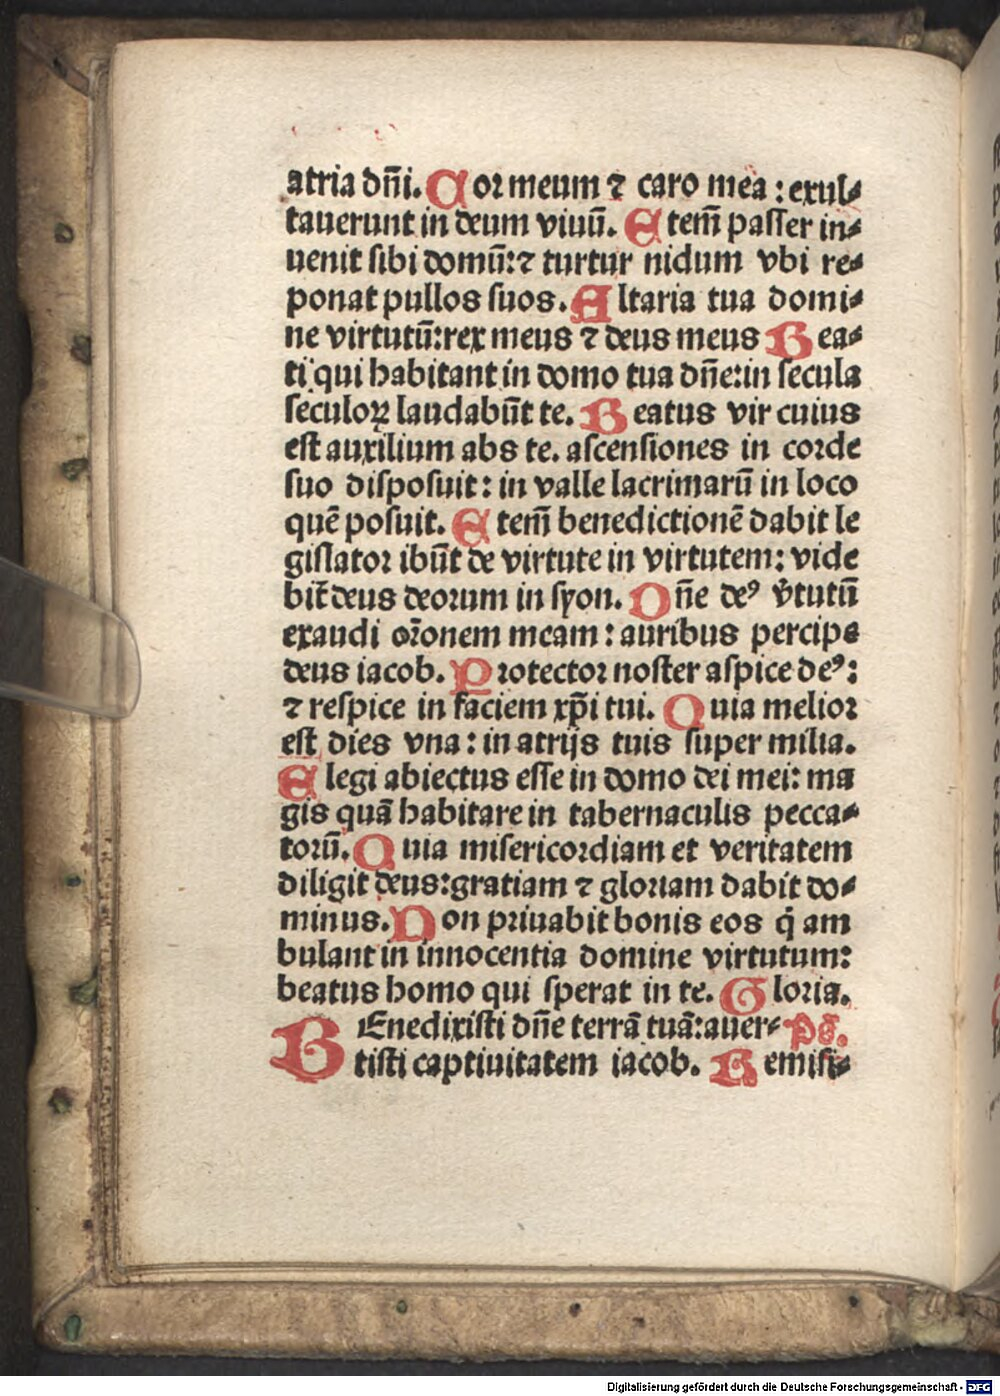 atria dn̄i. Cor meum ⁊ caro mea : exul⸗
tauerunt in deum viuū. Etem̄ passer in⸗
uenit sibi domū:⁊ turtur nidum vbi re⸗
ponat pullos suos. Altaria tua domi⸗
ne virtutū:rex meus ⁊ deus meus Bea⸗
ti qui habitant in domo tua dn̄e:in secula
seculoꝝ laudabūt te. Beatus vir cuius
est auxilium abs te. ascensiones in corde
suo disposuit: in valle lacrimarū in loco
quē posuit. Etem̄ benedictionē dabit le
gislator ibūt de virtute in virtutem: vide
bit̄ deus deorum in syon. Dn̄e deꝰ v̄tutū
exaudi or̄onem meam : auribus percipe
deus iacob. Protector noster aspice deꝰ:
⁊ respice in faciem xp̄i tui. Quia melior
est dies vna : in atrijs tuis super milia.
Elegi abiectus esse in domo dei mei: ma
gis quā habitare in tabernaculis pecca⸗
torū. Quia misericordiam et veritatem
diligit deus:gratiam ⁊ gloriam dabit do⸗
minus. Non priuabit bonis eos q̄ am
bulant in innocentia domine virtutum:
beatus homo qui sperat in te. Gloria.
BEnedixisti dn̄e terrā tuā:auer⸗ p̄s.
tisti captiuitatem iacob. Remisi⸗
Digitalisierung gefördert durch die Deutsche Forschungsgemeinschaft - DFG